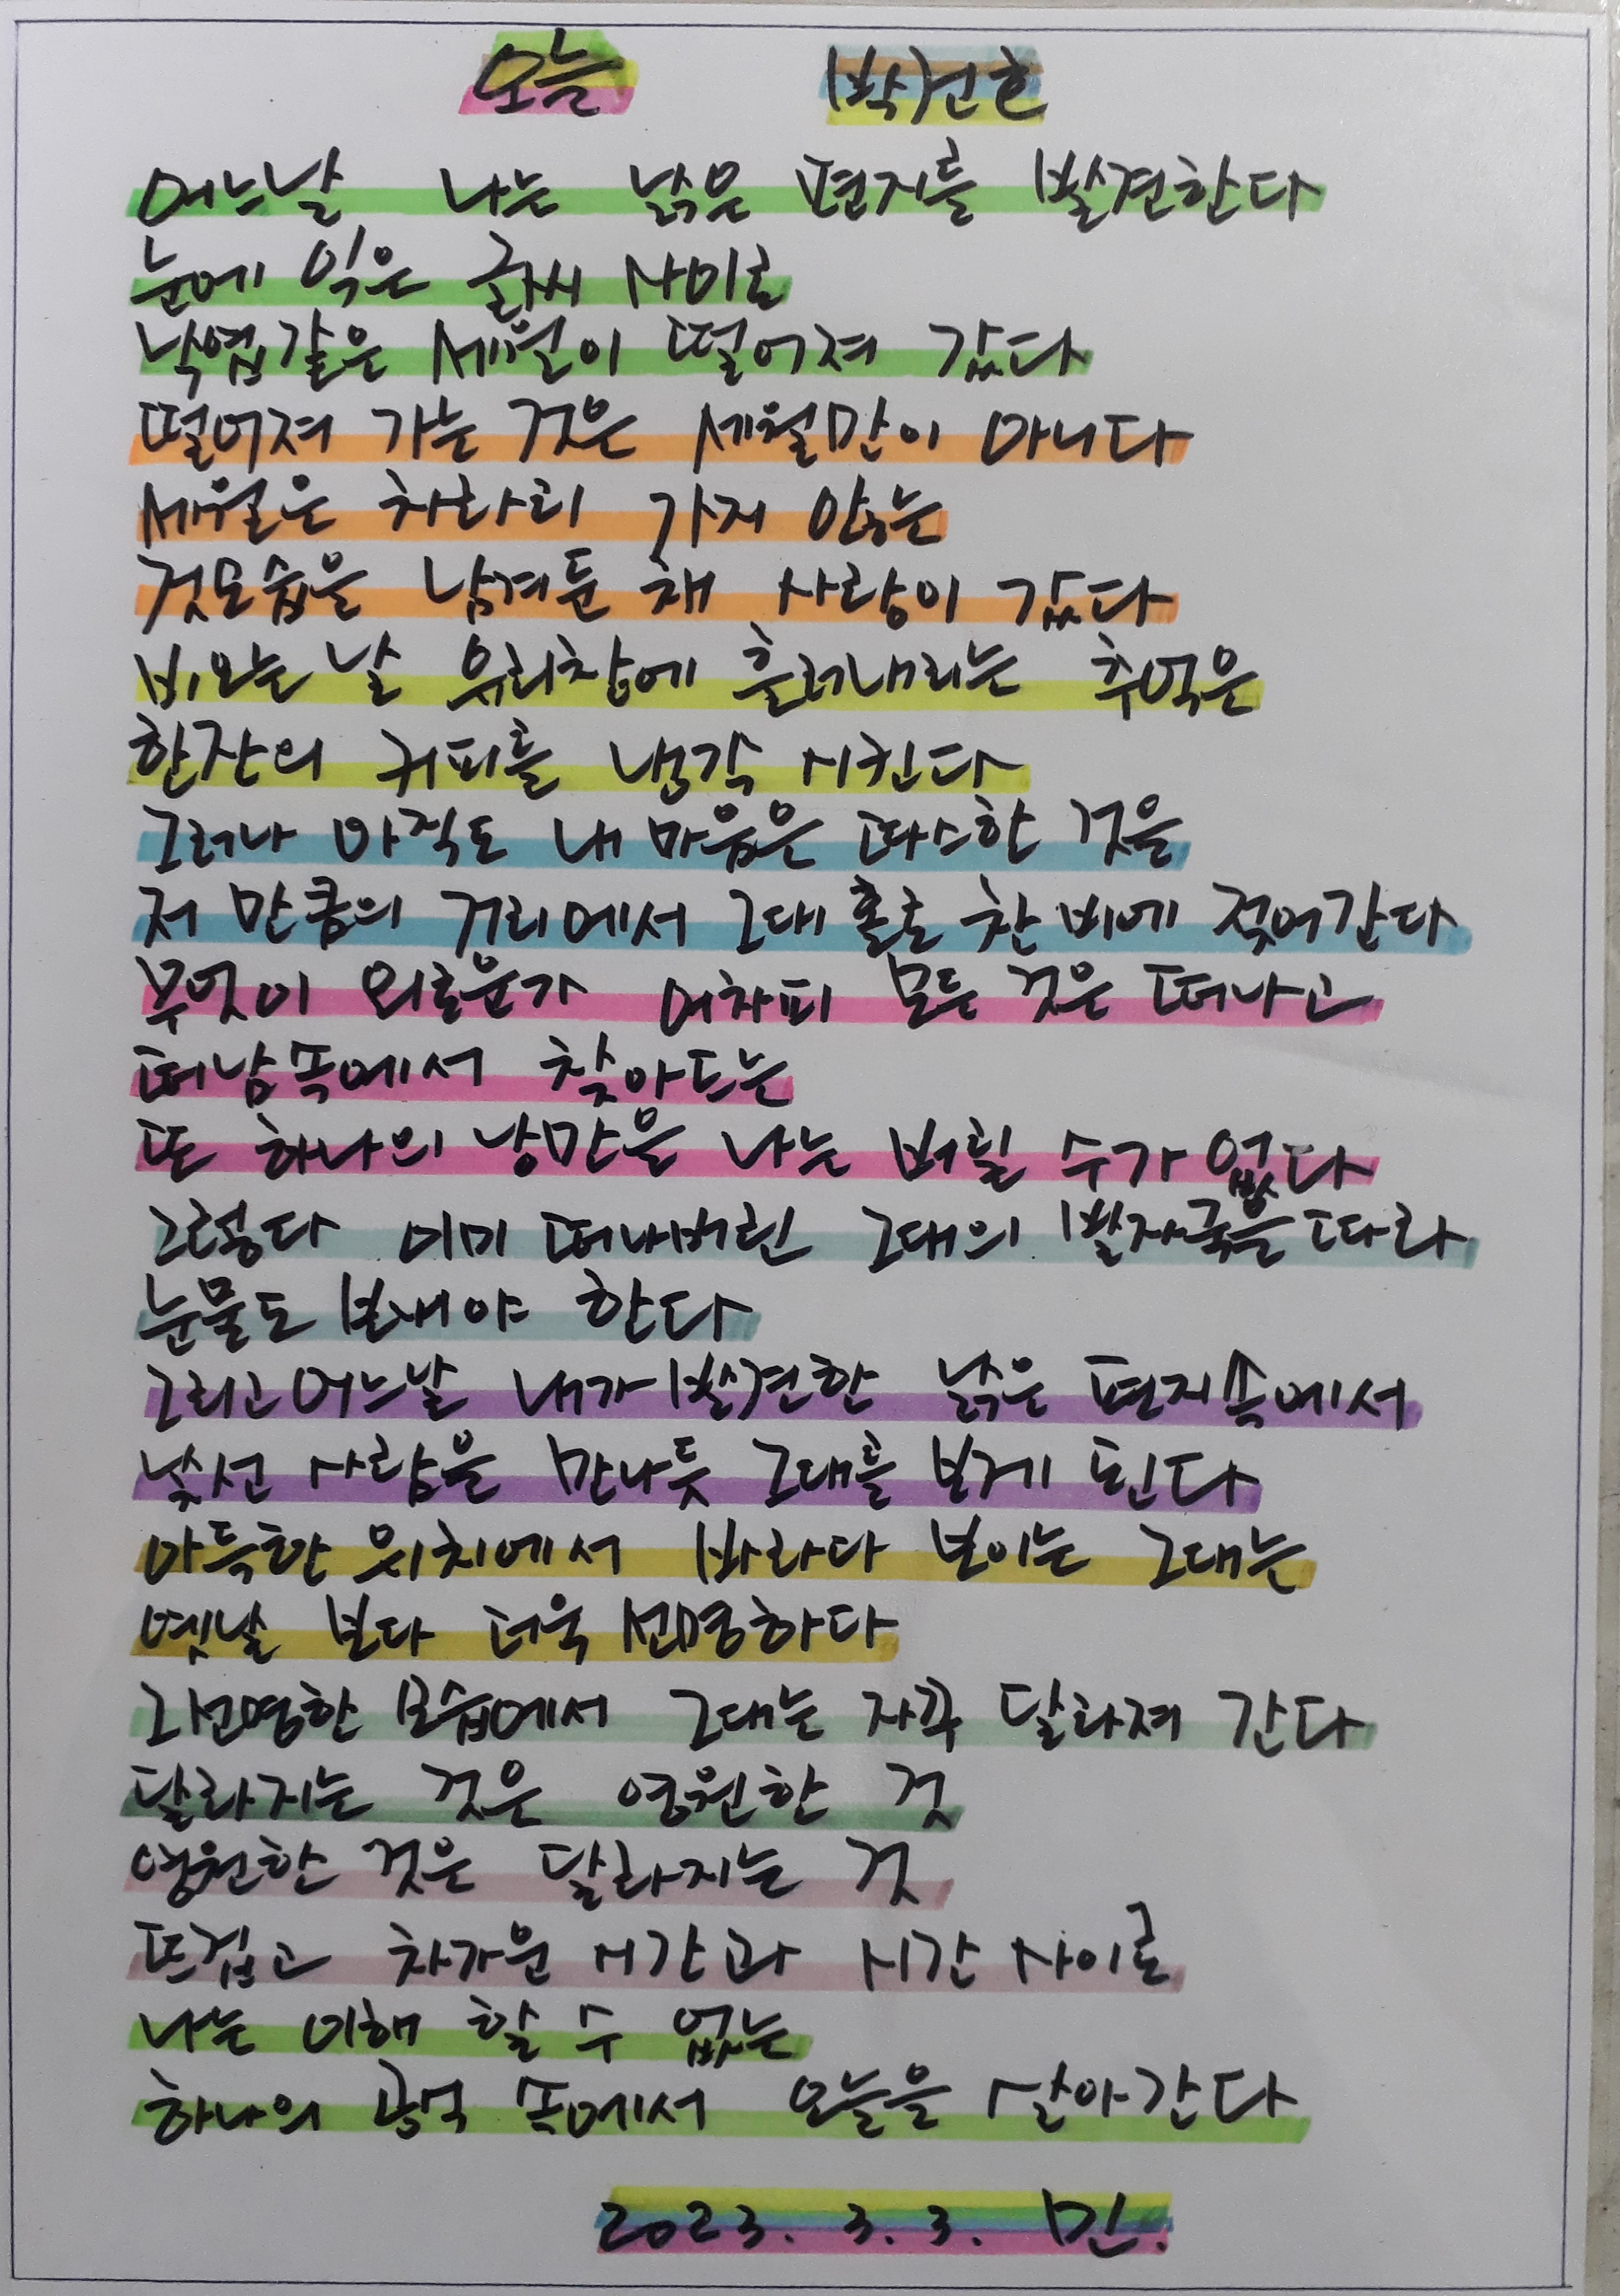 오늘 박건호
어느날 나는 낡은 편지를 발견한다
눈에 익은 글씨 사이로
낙엽같은 세월이 떨어져 갔다
떨어져 가는 것은 세월만이 아니다
세월은 차라리 가지 않는
것모습을 남겨둔 채 사랑이 갔다
비오는 날 유리창에 흘러내리는 추억은
한잔의 커피를 생각 시킨다
그러나 아직도 내 마음은 따스한 것을
저 만큼의 거리에서 그대 홀로 찬 비에 젖어간다
무엇이 외로운가 어차피 모든 것은 떠나고
떠남속에서 찾아드는
또 하나의 낭만을 나는 버릴 수가 없다
그렇다 이미 떠나버린 그대의 발자국을 따라
눈물도 보내야 한다
그리고 어느날 내가 발견한 낡은 편지속에서
낯선 사람을 만나듯 그대를 보게 된다
아득한 위치에서 바라다 보이는 그대는
옛날 보다 더욱 선명하다
그 선명한 모습에서 그대는 자꾸 달라져 간다
달라지는 것은 영원한 것
영원한 것은 달라지는 것
뜨겁고 차가운 시간과 시간 사이로
나는 이해 할 수 없는
하나의 공식 속에서 오늘을 살아간다
2023. 3. 3. 민.